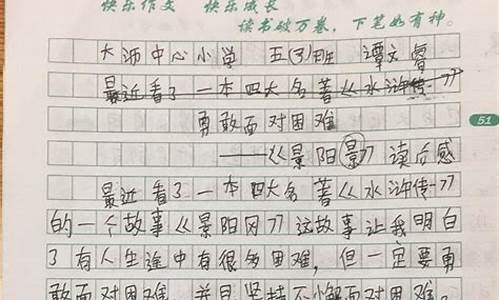 快乐作文 快乐成长
读书破万卷，下笔如有神。
大沥中心小学 五(3)班 谭文睿
最近看了一本四大名著《水浒传》
勇敢面对困难
——《景阳景》读后感
51
最近看了一本四大名著《水浒传》
的一个故事《景阳冈》这故事让我明白
了有人生途中有很多困难，但一定要勇
敢面对困难，并且坚持不懈面对困难。